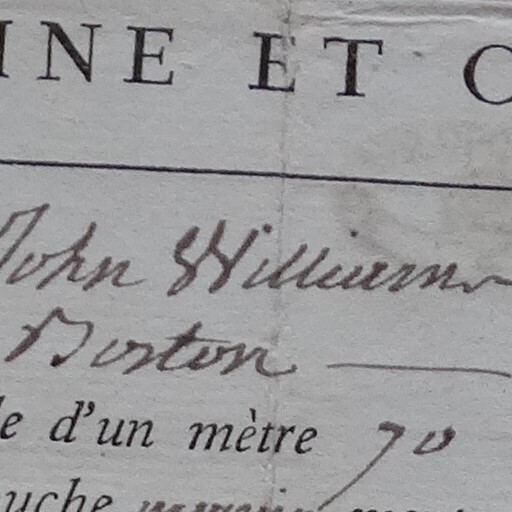 INE ET C
John Williams
Boston
e d'un mètre 70
ouche